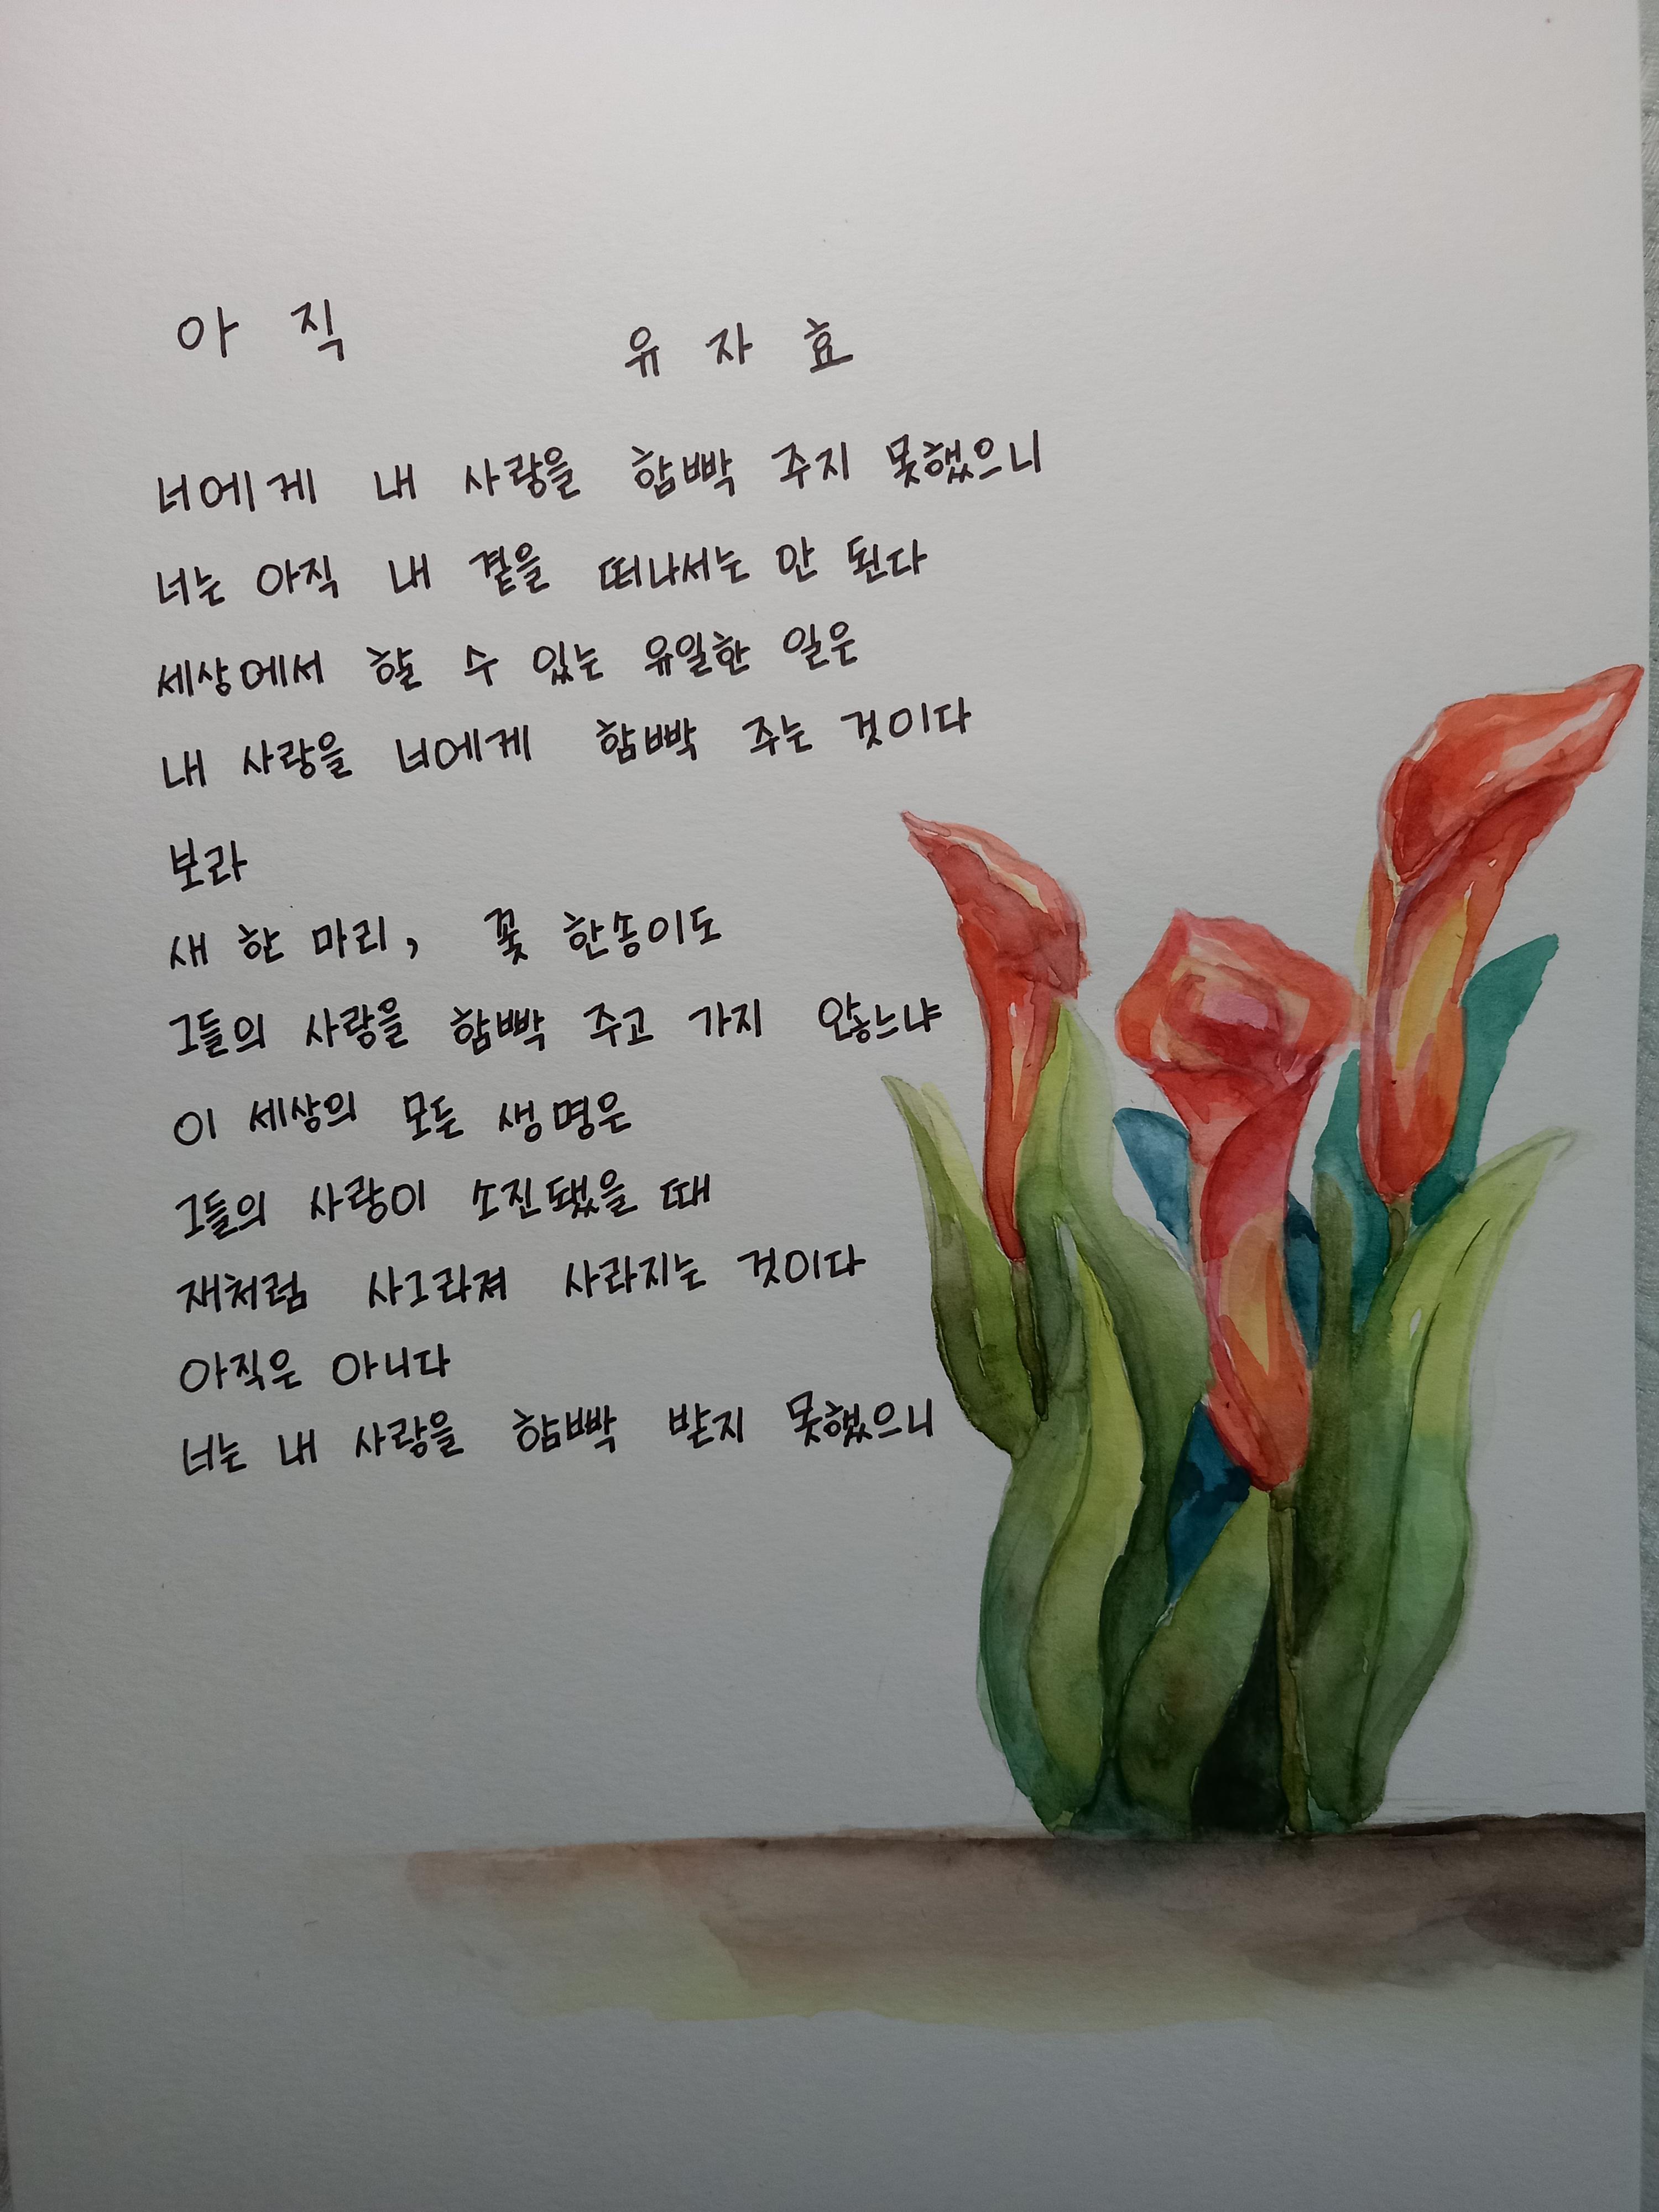 아 직 유 자 효
너에게 내 사랑을 함빡 주지 못했으니
너는 아직 내 곁을 떠나서는 안 된다
세상에서 할 수 있는 유일한 일은
내 사랑을 너에게 함빡 주는 것이다
보라
새 한 마리, 꽃 한송이도
그들의 사랑을 함빡 주고 가지 않느냐
이 세상의 모든 생명은
그들의 사랑이 소진됐을 때
재처럼 사그라져 사라지는 것이다
아직은 아니다
너는 내 사랑을 함빡 받지 못했으니